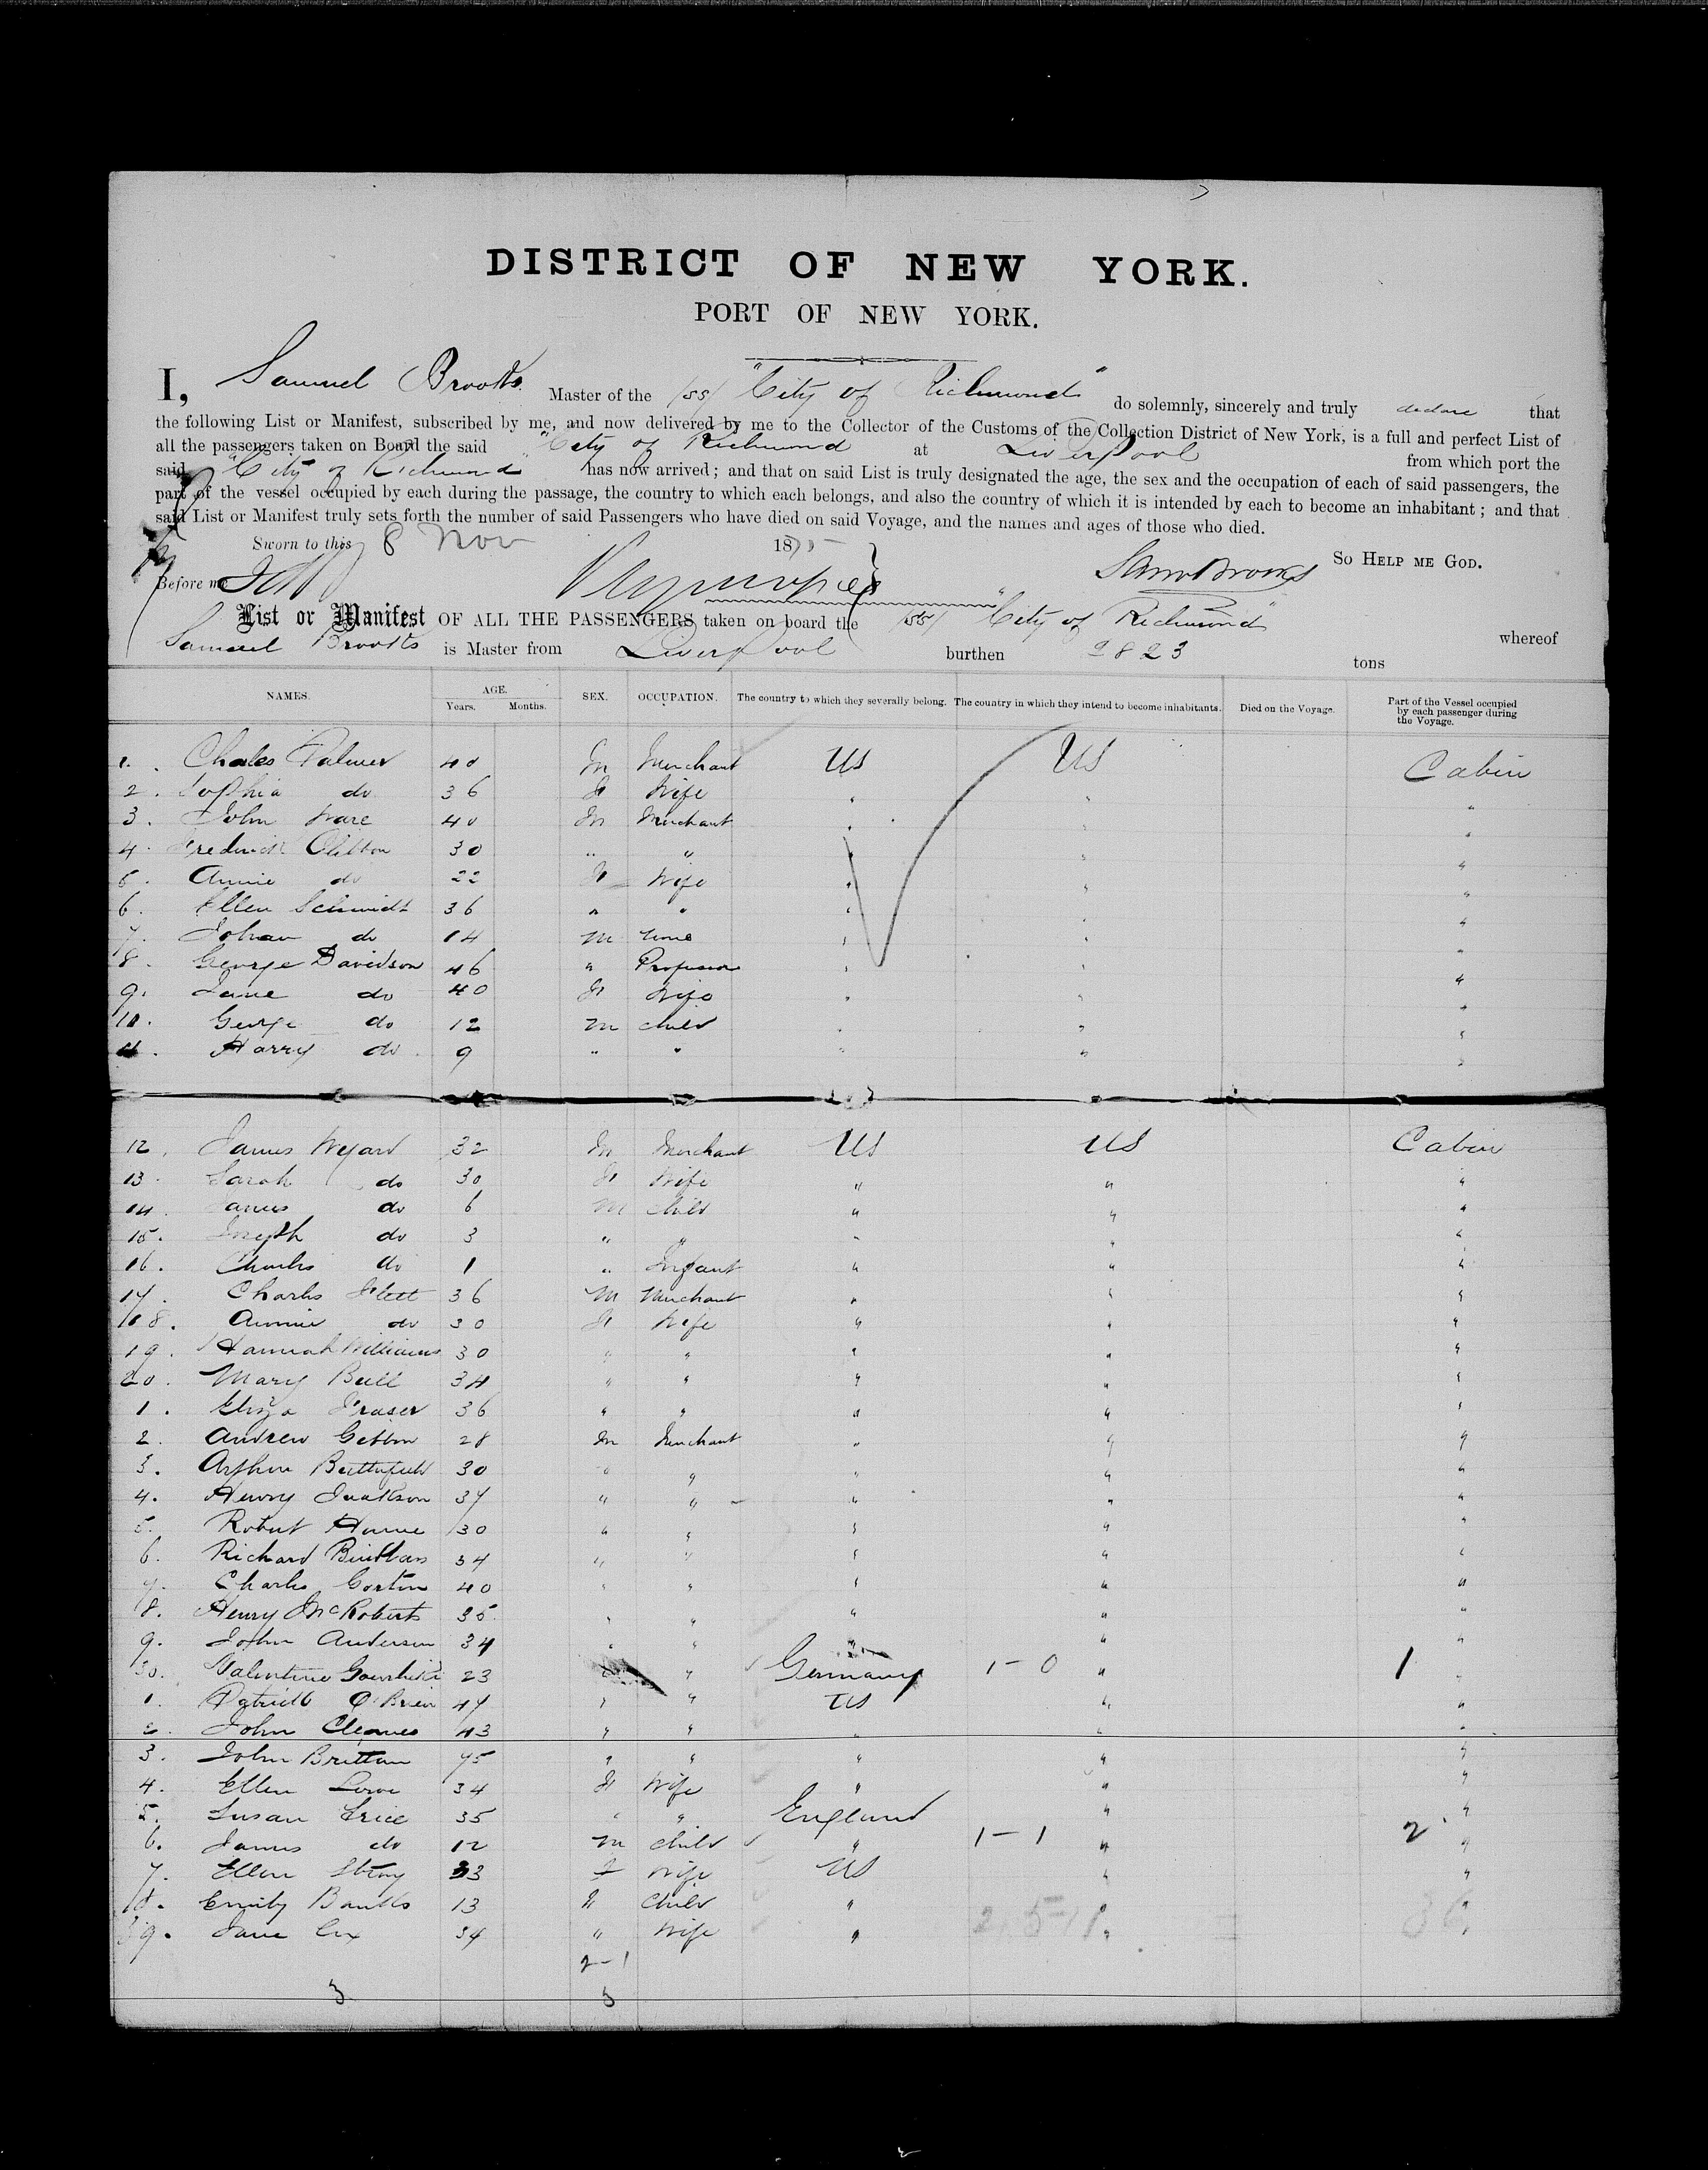 DISTRICT OF NEW YORK.
PORT OF NEW YORK.
I, Samuel Brooks Master of the (SS) "City of Richmond" do solemnly, sincerely and truly declare that
the following List or Manifest, subscribed by me, and now delivered by me to the Collector of the Customs of the Collection District of New York, is a full and perfect List of
all the passengers taken on Board the said "City of Richmond at Liverpool from which port the
said "City of Richmond" has now arrived; and that on said List is truly designated the age, the sex and the occupation of each of said passengers, the
part of the vessel occupied by each during the passage, the country to which each belongs, and also the country of which it is intended by each to become an inhabitant; and that
said List or Manifest truly sets forth the number of said Passengers who have died on said Voyage, and the names and ages of those who died.
Sworn to this 8 Nov 1875 So Help me God.
Before me Saml Brooks
List or Manifest OF ALL THE PASSENGERS taken on board the (SS) "City of Richmond" whereof
Samuel Brooks is Master from Liverpool burthen 2823 tons
NAMES. AGE. Years. Months. SEX. OCCUPATION. The country to which they severally belong. The country in which they intend to become inhabitants. Died on the Voyage. Part of the Vessel occupied by each passenger during the Voyage.
1. Charles Palmer 40 M Merchant US US Cabin
2. Sophia do 36 F Wife " " "
3. John Ware 40 M Merchant " " "
4. Frederick 30 " " " " "
5. Annie do 22 F Wife " " "
6. Ellen Schmidt 36 " " " " "
7. Johan do 14 M none " " "
8. George Davidson 46 " Professor " " "
9. Jane do 40 F Wife " " "
10. George do 12 M child " " "
11. Harry do 9 " " " " "
12. James 32 M Merchant US US Cabin
13. Sarah do 30 F Wife " " "
14. James do 6 M child " " "
15. Joseph do 3 " " " " "
16. Charles do 1 " Infant " " "
17. Charles Flett 36 M Merchant " " "
18. Annie do 30 F Wife " " "
19. Hannah Williams 30 " " " " "
20. Mary Bell 34 " " " " "
1. Eliza Fraser 36 " " " " "
2. Andrew Gibbon 28 M Merchant " " "
3. Arthur Butterfield 30 " " " " "
4. Henry Jackson 37 " " " " "
5. Robert Horne 30 " " " " "
6. Richard 34 " " " " "
7. Charles Gorton 40 " " " " "
8. Henry McRoberts 35 " " " " "
9. John Anderson 34 " " " " "
30. Valentine 23 " " Germany 1-0 " 1 "
1. Patrick O'Brien 47 " " US " "
2. John Cleaves 43 " " " " "
3. John Brittan 75 " " " " "
4. Ellen Lowe 34 F Wife " " "
5. Susan Price 35 " " England " "
6. James do 12 M child " 1-1 " 2 "
7. Ellen 33 F Wife US " "
8. Emily Banks 13 F child " " "
39. Jane Cox 34 " Wife " " "
2-1
3 3